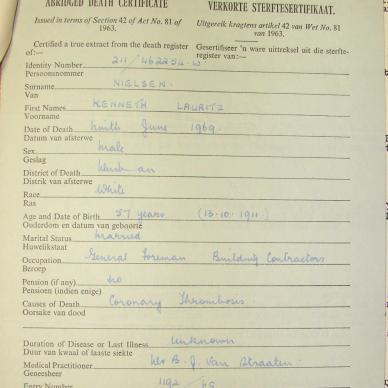 ABRIDGED DEATH CERTIFICATE
VERKORTE STERFTESERTIFIKAAT.
Issued in terms of Section 42 of Act No. 81 of 1963.
Uitgereik kragtens artikel 42 van Wet No. 81 van 1963.
Certified a true extract from the death register of:—
Gesertifiseer 'n ware uittreksel uit die sterfteregister van:—
Identity Number 211/462254 W
Persoonsnommer
Surname NIELSEN.
Van
First Names KENNETH LAURITZ
Voorname
Date of Death Ninth June 1969.
Datum van afsterwe
Sex Male
Geslag
District of Death
Distrik van afsterwe
Race White
Ras
Age and Date of Birth 57 years (13.10.1911)
Ouderdom en datum van geboorte
Marital Status Married
Huwelikstaat
Occupation General Foreman Building Contractors
Beroep
Pension (if any) No
Pensioen (indien enige)
Causes of Death Coronary Thrombosis.
Oorsake van dood
Duration of Disease or Last Illness Unknown
Duur van kwaal of laaste siekte
Medical Practitioner B. J. Van Straaten.
Geneesheer
Entry Number 1192/